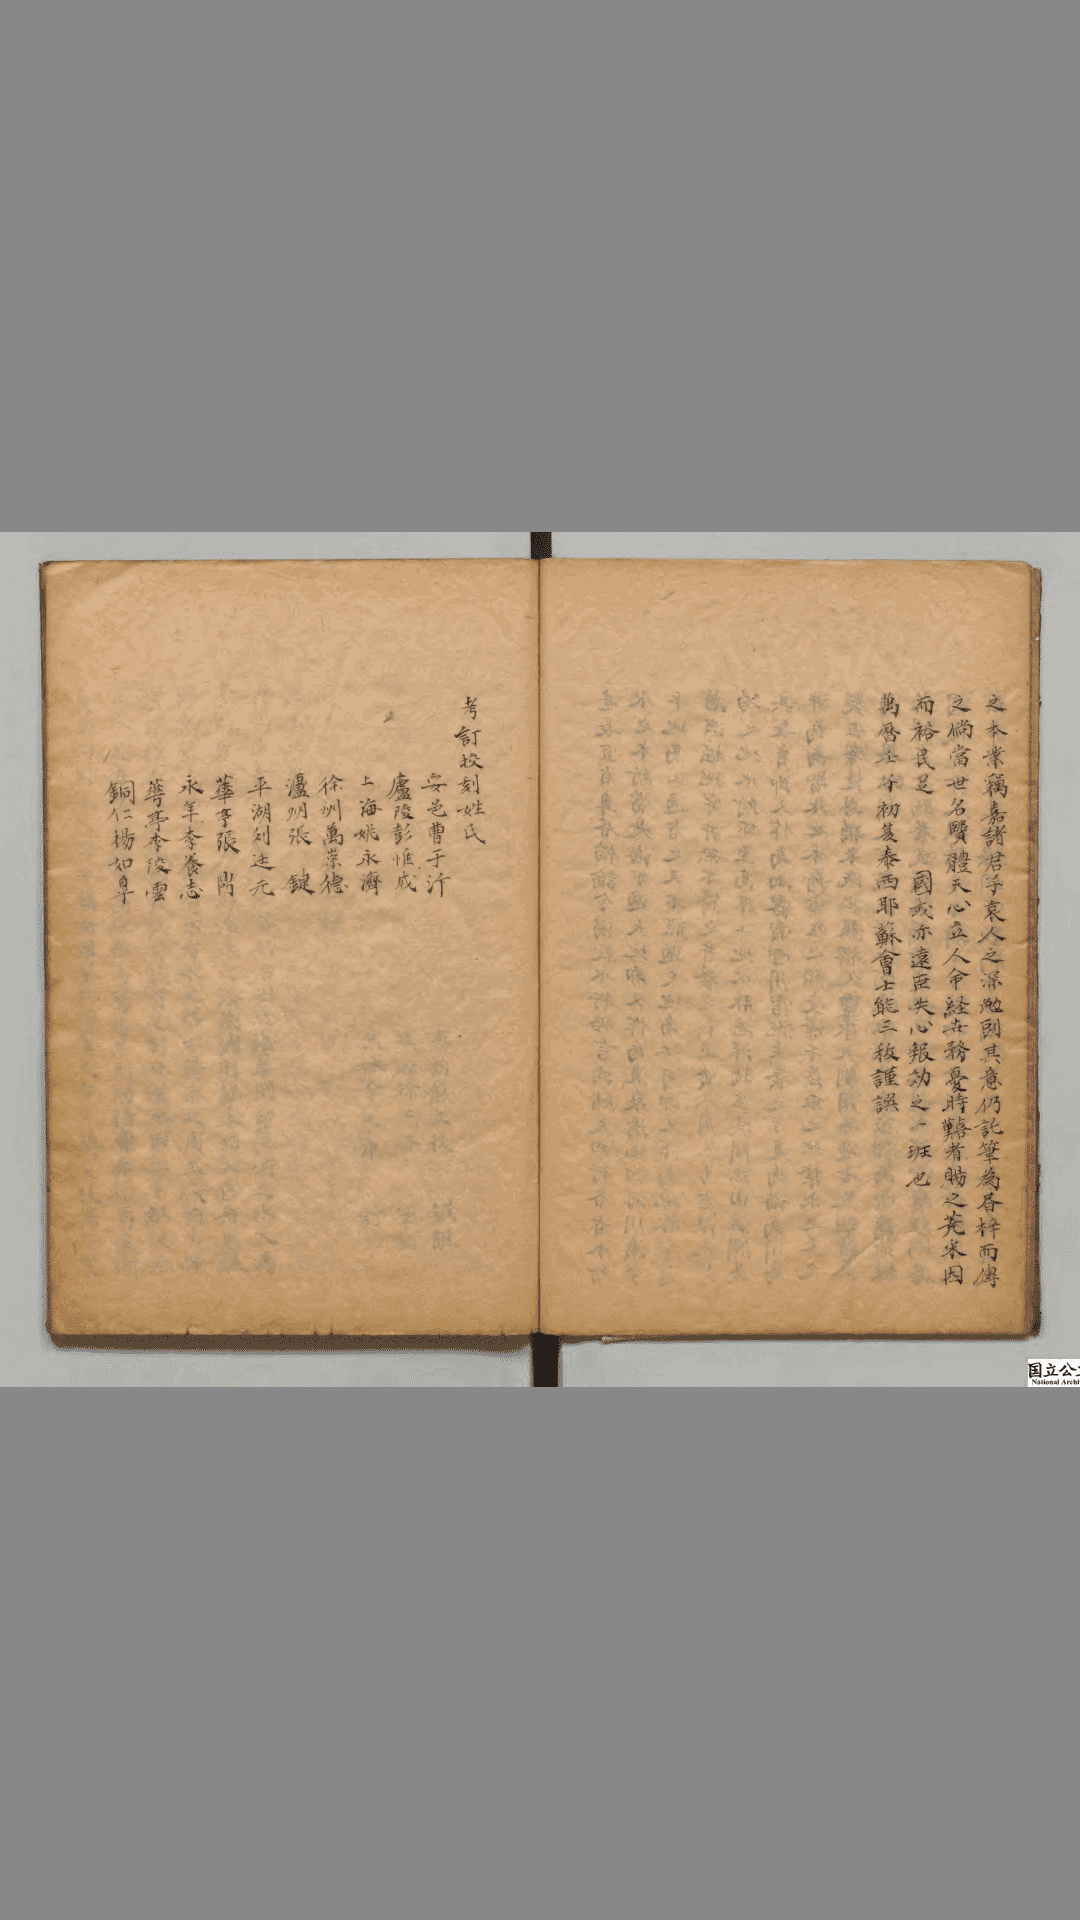 之本業竊嘉諸君子哀人之深勉副其意仍託筆為居梓而傳
之倘當世名賢體天心立人命経世務憂時艱者賜之蒐采因
而裕民足國或亦遠臣矢心報効之一班也
萬曆壬子初夏泰西耶蘇會士熊三拔謹譔
考訂挍刻姓氏
安邑曹于汴
廬陵彭惟成
上海姚永濟
徐州萬崇德
瀘州張鍵
平湖劉廷元
華亭張鼐
永年李養志
華亭李凌雲
銅仁楊如皐
国立公文
National Archi